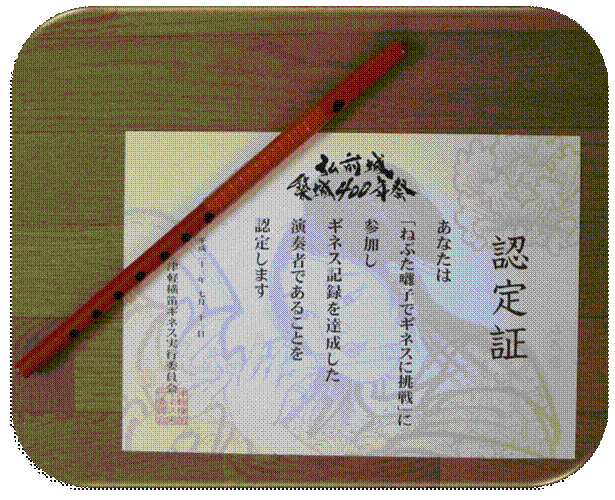 弘前城
築城400年祭
認定証
あなたは
「ねぶた囃子でギネスに挑戦」に
参加し
ギネス記録を達成した
演奏者であることを
認定します
津軽横笛ギネス実行委員会